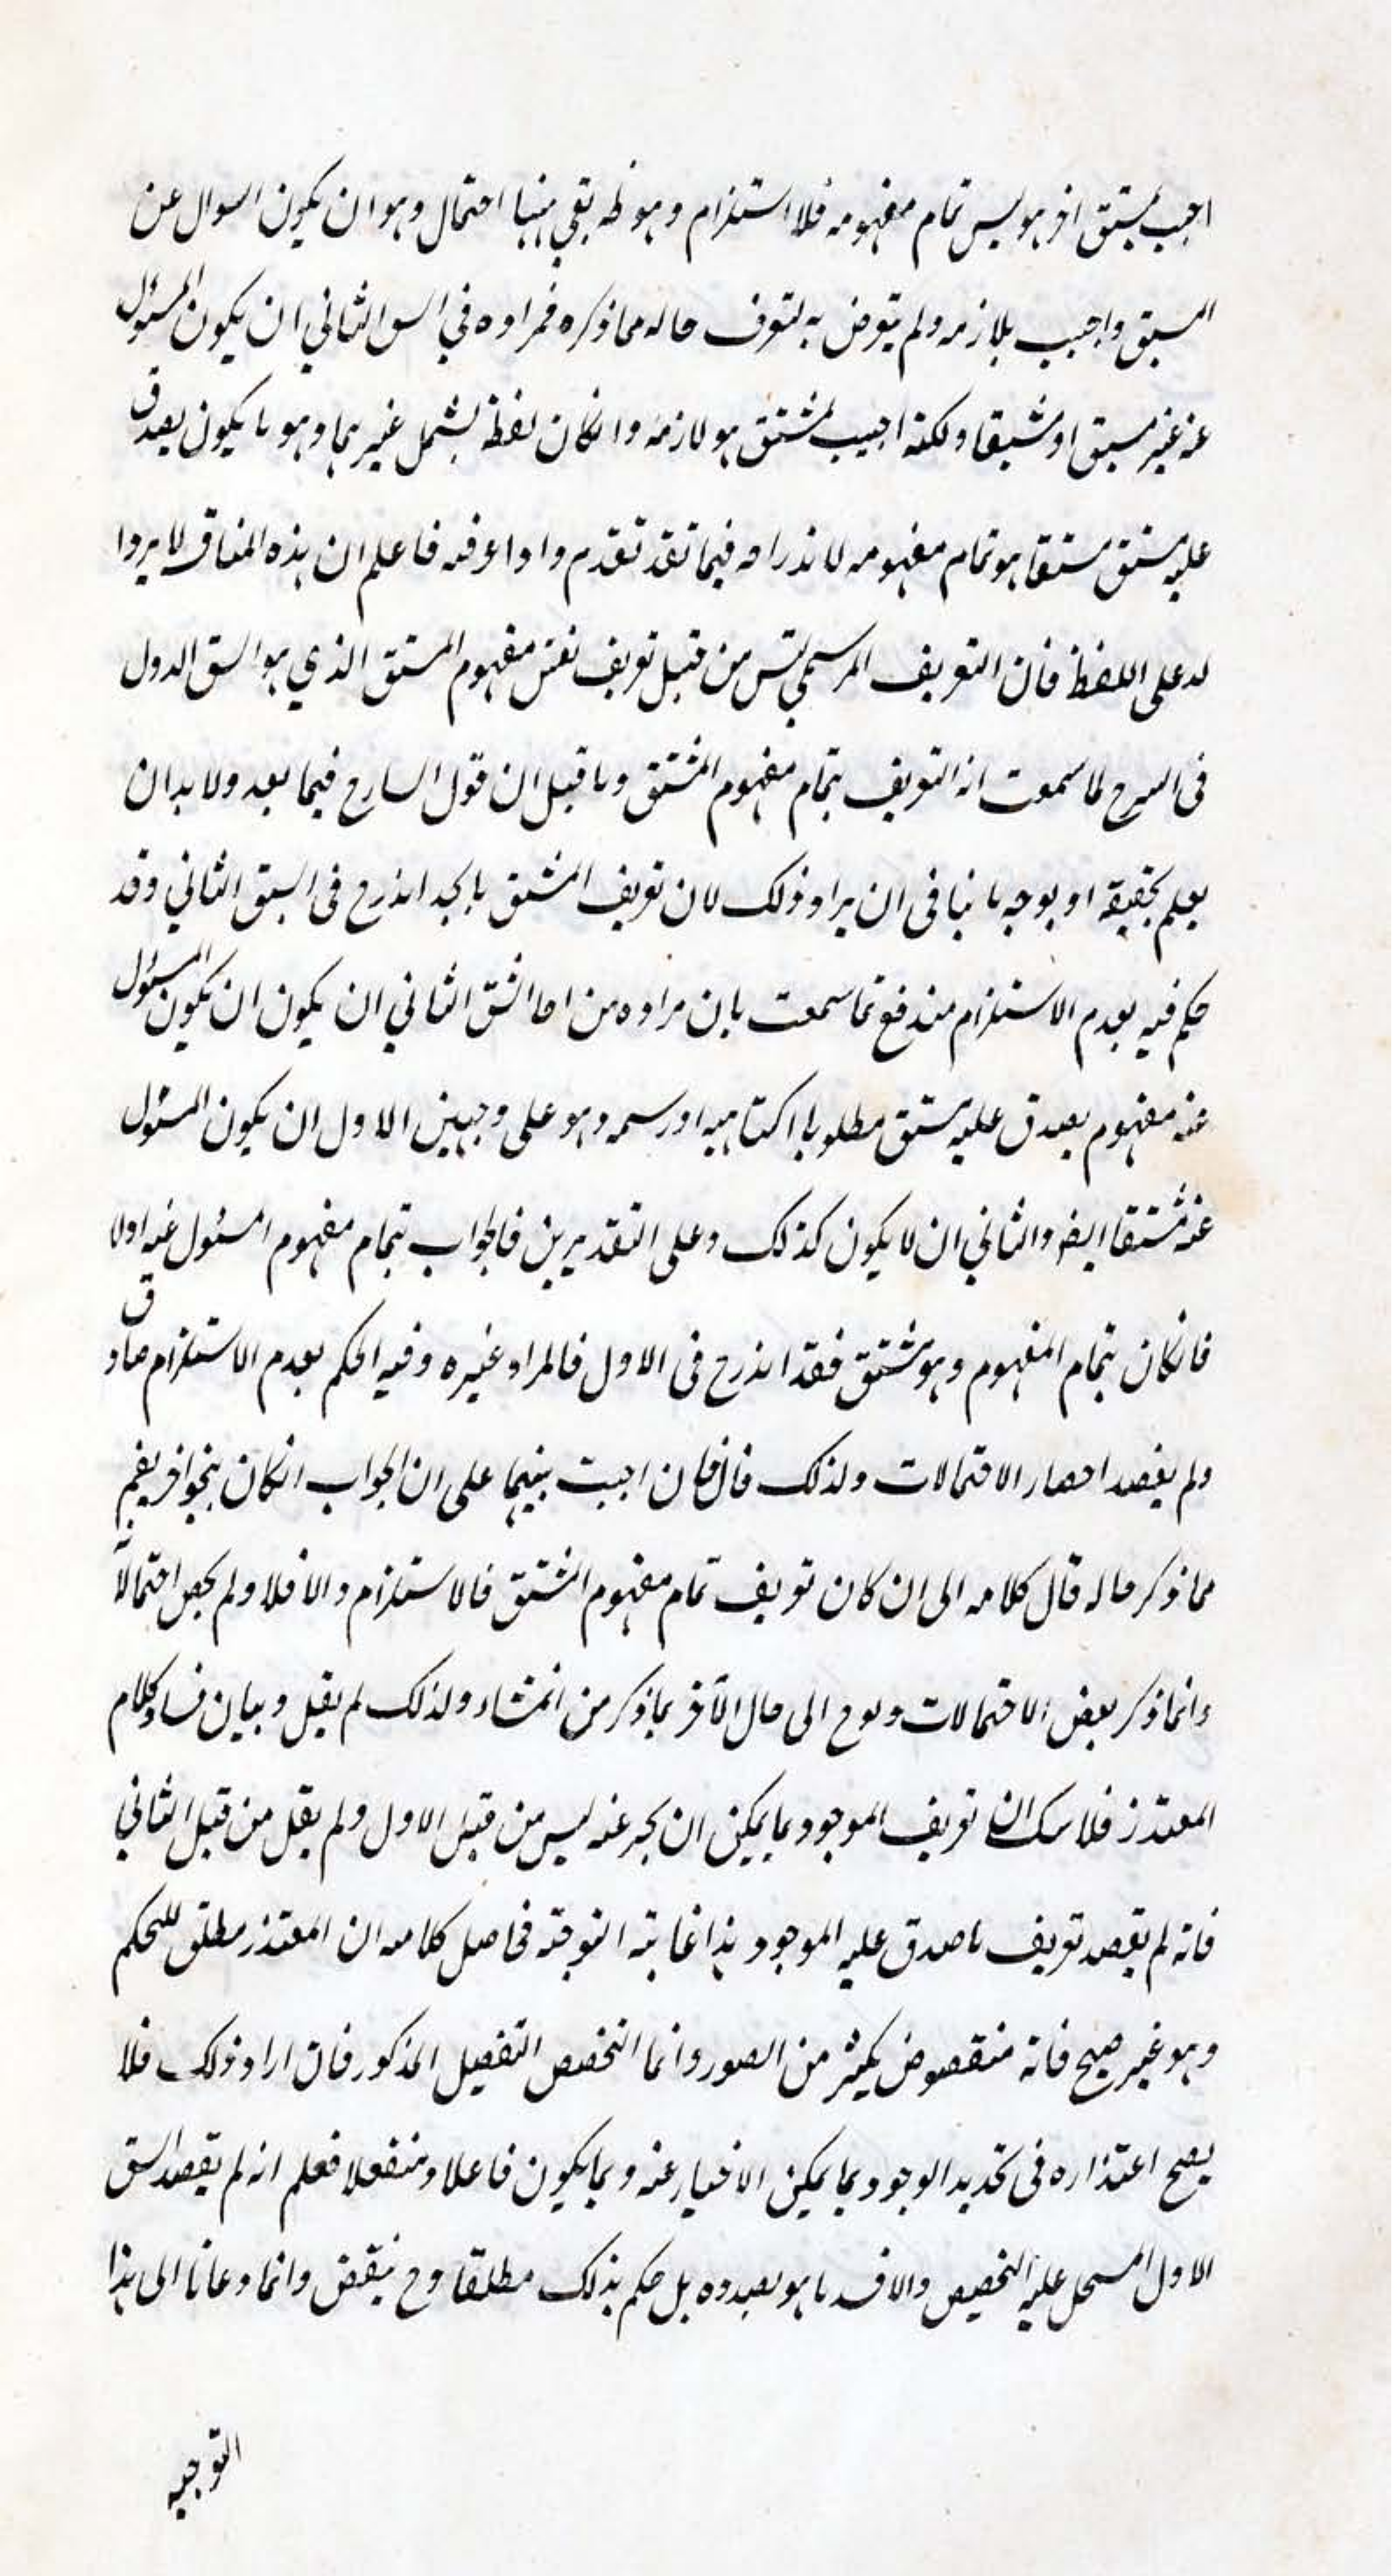 اجيب بمشتق اخر هو ليس تمام مفهومه فلا استلزام وهو ظه بقي ههنا احتمال وهو ان يكون السوال عن
المستق واجيب بلازمه ولم يتعرض به لتعرف حاله مما ذكره فمراده في السق الثاني ان يكون المسئول
عنه غير مستق او مشتقا ولكنه اجيب بمشتق هو لازمه وانكان لفظه يشمل غيرهما وهو ما يكون يصدق
عليه مستق مستقا هو تمام مفهومه لاندراجه فيما تقد تقدم واذا عرفته فاعلم ان هذه المناقـ لا يردا
له على اللفظ فان التعريف الرسمي ليس من قبيل تعريف نفس مفهوم المستق الذي هو السق الاول
في السرح لما سمعت انه التعريف بتمام مفهوم المشتق وما قيل ان قول السارح فيما بعد ولا بد ان
يعلم بحقيقة او بوجه ما ينافي ان يراد ذلك لان تعريف المشتق بالحد اندرج في السق الثاني وقد
حكم فيه بعدم الاستلزام مندفع بما سمعت بان مراده من الشق الثاني ان يكون ان يكون المسئول
عنه مفهوم يصدق عليه مستق مطلوبا اكتـ ماهيه او رسمه وهو على وجهين الاول ان يكون المسئول
عنه مشتقا ايضا والثاني ان لا يكون كذلك وعلى التقديرين فالجواب بتمام مفهوم المسئول عنه اولا
فانكان بتمام المفهوم وهو مشتق فقد اندرج في الاول فالمراد غيره وفيه الحكم بعدم الاستلزام صادق
ولم يقصد احصار الاحتمالات ولذلك قال فان اجبت تنبيها على ان الجواب انكان بنحو اخر يفهم
مما ذكر حاله قال كلامه الى ان كان تعريف تمام مفهوم المشتق فالاستلزام والا فلا ولم يحص احتمالا
وانما ذكر بعض الاحتمالات ولوح الى حال الاخر بما ذكر من المنشاء ولذلك لم يقل وبيان فساد كلام
المعتذر فلا سك ان تعريف الموجود بما يمكن ان يخبر عنه ليس من قبيل الاول ولم يقل من قبيل الثاني
فانه لم يقصد تعريف ما صدق عليه الموجود هذا غاية التوجيه فحاصل كلامه ان المعتذر مطلق للحكم
وهو غير صحيح فانه منقوض بكثير من الصور وانما التخصص التفصيل المذكور فان اراد ذلك فلا
يصح اعتذاره في تحديد الوجود بما يمكن الاخبار عنه وبما يكون فاعلا ومنفعلا فعلم انه لم يقصد السق
الاول المسجل عليه التخصيص والافسد ما هو بصدده بل حكم بذلك مطلقا وح ينقض وانما دعانا الى هذا
التوجيه